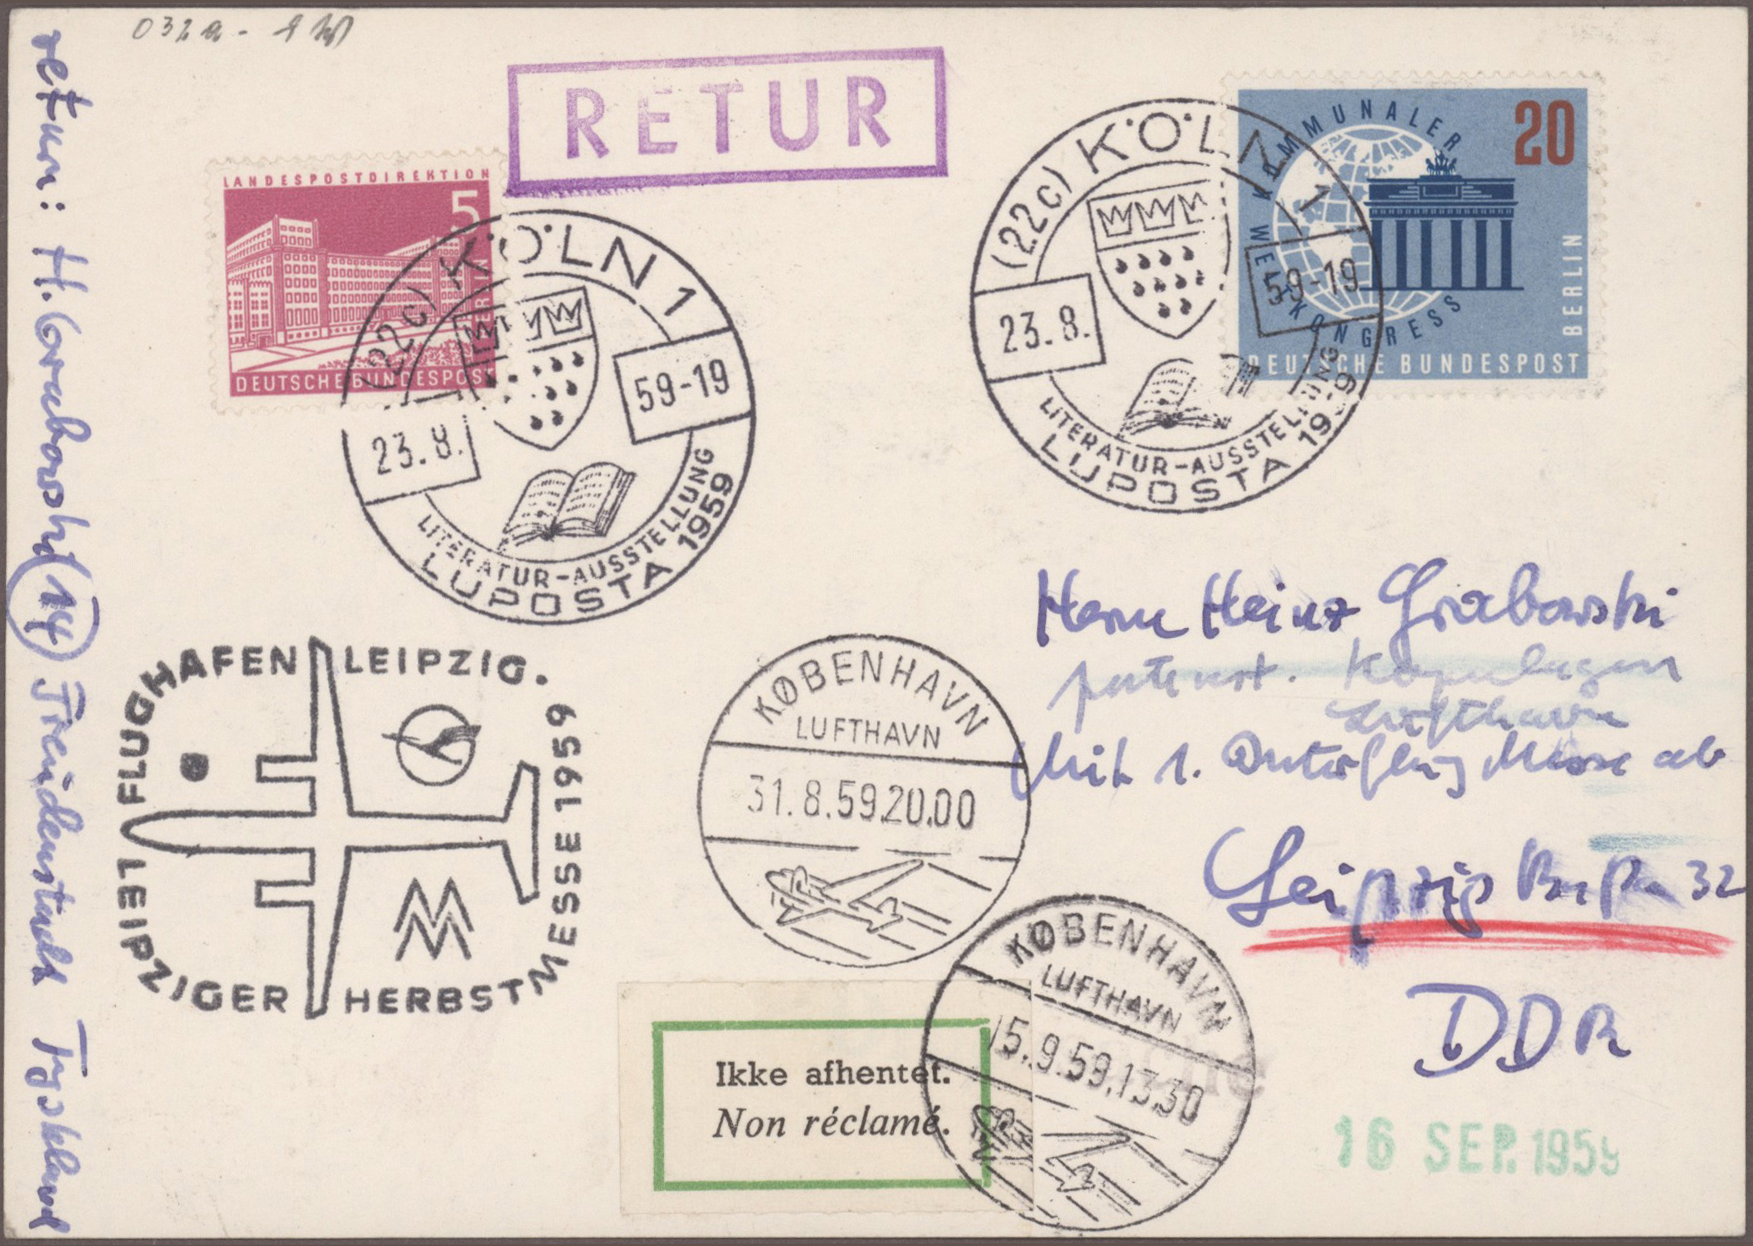 RETUR
LANDESPOSTDIREKTION
5
BERLIN
DEUTSCHE BUNDESPOST
(22c) KÖLN 1
23.8. 59-19
LITERATUR-AUSSTELLUNG
LUPOSTA 1959
KOMMUNALER
WELTKONGRESS
20
BERLIN
DEUTSCHE BUNDESPOST
(22c) KÖLN 1
23.8. 59-19
LITERATUR-AUSSTELLUNG
LUPOSTA 1959
retur: H. Grabowski (14) Freudenstadt Tyskland
FLUGHAFEN LEIPZIG.
LEIPZIGER HERBSTMESSE 1959
MM
KØBENHAVN
LUFTHAVN
31.8.59.20.00
Herrn Heinz Grabowski
postlagernd. Kopenhagen
Lufthavn
Mit 1. Messe ab
Leipzig 32
DDR
KØBENHAVN
LUFTHAVN
15.9.59.13.30
Ikke afhentet.
Non réclamé.
16 SEP. 1959